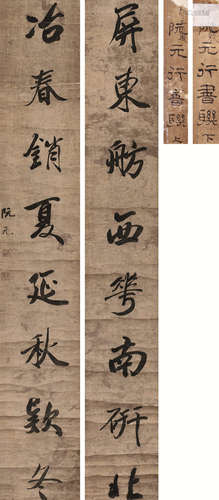 屏東舫西華南研北
冶春銷夏延秋款冬
阮元
阮元行書聯上
阮元行書聯下